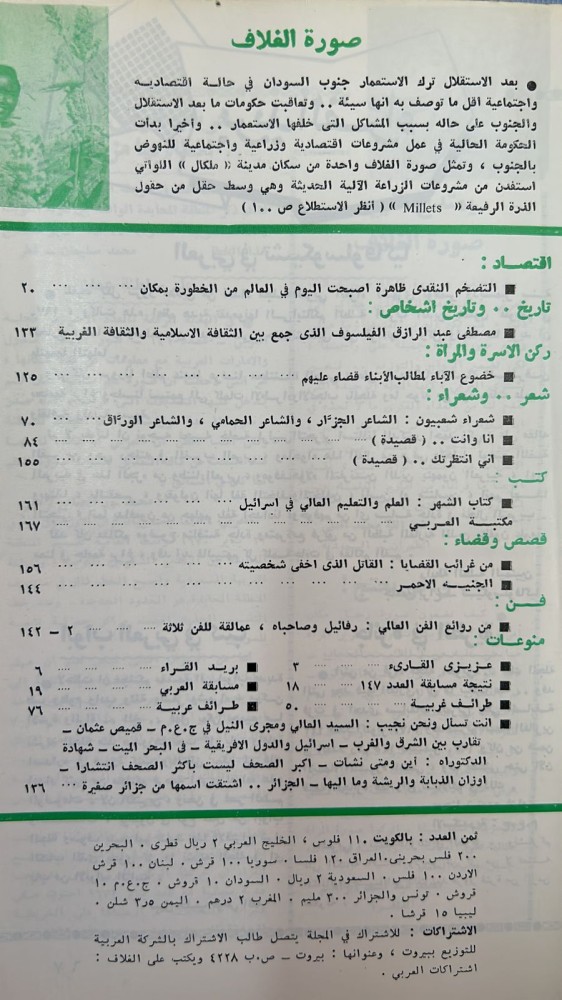 صورة الغلاف
● بعد الاستقلال ترك الاستعمار جنوب السودان في حالة اقتصاديه
واجتماعية أقل ما توصف به انها سيئة .. وتعاقبت حكومات ما بعد الاستقلال
والجنوب على حاله بسبب المشاكل التى خلفها الاستعمار .. وأخيرا بدأت
الحكومة الحالية في عمل مشروعات اقتصادية وزراعية واجتماعية للنهوض
بالجنوب ، وتمثل صورة الغلاف واحدة من سكان مدينة « ملكال » اللوآتي
استفدن من مشروعات الزراعة الآلية الحديثة وهي وسط حقل من حقول
الذرة الرفيعة « Millets » ( أنظر الاستطلاع ص ١٠٠ )
اقتصاد :
■ التضخم النقدى ظاهرة اصبحت اليوم في العالم من الخطورة بمكان ... ... ... ٢٠
تاريخ .. وتاريخ اشخاص :
■ مصطفى عبد الرازق الفيلسوف الذى جمع بين الثقافة الاسلامية والثقافة الغربية ١٣٣
ركن الاسرة والمرأة :
■ خضوع الآباء لمطالب الأبناء قضاء عليهم ... ... ... ... ... ... ١٢٥
شعر .. وشعراء :
■ شعراء شعبيون : الشاعر الجزَّار ، والشاعر الحمامي ، والشاعر الورَّاق ... ... ٧٠
■ انا وانت .. ( قصيدة ) ... ... ... ... ... ... ... ... ٨٤
■ اني انتظرتك .. ( قصيدة ) ... ... ... ... ... ... ... ... ١٥٥
كتب :
■ كتاب الشهر : العلم والتعليم العالي في اسرائيل ... ... ... ... ١٦١
مكتبة العربي ... ... ... ... ... ... ... ... ... ١٦٧
قصص وقضاء :
■ من غرائب القضايا : القاتل الذى اخفى شخصيته ... ... ... ... ١٥٦
■ الجنيه الاحمر ... ... ... ... ... ... ... ... ١٤٤
فن :
■ من روائع الفن العالمي : رفائيل وصاحباه ، عمالقة للفن ثلاثة ... ... ٢ – ١٤٢
منوعات :
■ عزيزى القارىء ... ... ٣ ■ بريد القراء ... ... ٦
■ نتيجة مسابقة العدد ١٤٧ ١٨ ■ مسابقة العربي ... ... ١٩
■ طرائف غربية ... ... ٥٠ ■ طرائف عربية ... ... ٧٦
■ انت تسال ونحن نجيب : السيد العالي ومجرى النيل في ج.ع.م – قميص عثمان –
تقارب بين الشرق والغرب – اسرائيل والدول الافريقية – فى البحر الميت – شهادة
الدكتوراه : أين ومتى نشات – اكبر الصحف ليست بأكثر الصحف انتشارا –
اوزان الذبابة والريشة وما اليها – الجزائر .. اشتقت اسمها من جزائر صغيرة ... ١٣٦
ثمن العدد : بالكويت ١١٠ فلوس ، الخليج العربي ٢ ريال قطرى . البحرين
٢٠٠ فلس بحرينى . العراق ١٢٠ فلسا . سوريا ١٠٠ قرش . لبنان ١٠٠ قرش
الاردن ١٠٠ فلس . السعودية ٢ ريال . السودان ١٠ قروش . ج.ع.م ١٠
قروش . تونس والجزائر ٣٠٠ مليم . المغرب ٢ درهم . اليمن ٣٫٥ شلن .
ليبيا ١٥ قرشا .
الاشتراكات : للاشتراك في المجلة يتصل طالب الاشتراك بالشركة العربية
للتوزيع ببيروت ، وعنوانها : بيروت – ص.ب ٤٢٢٨ ويكتب على الغلاف :
اشتراكات العربي .